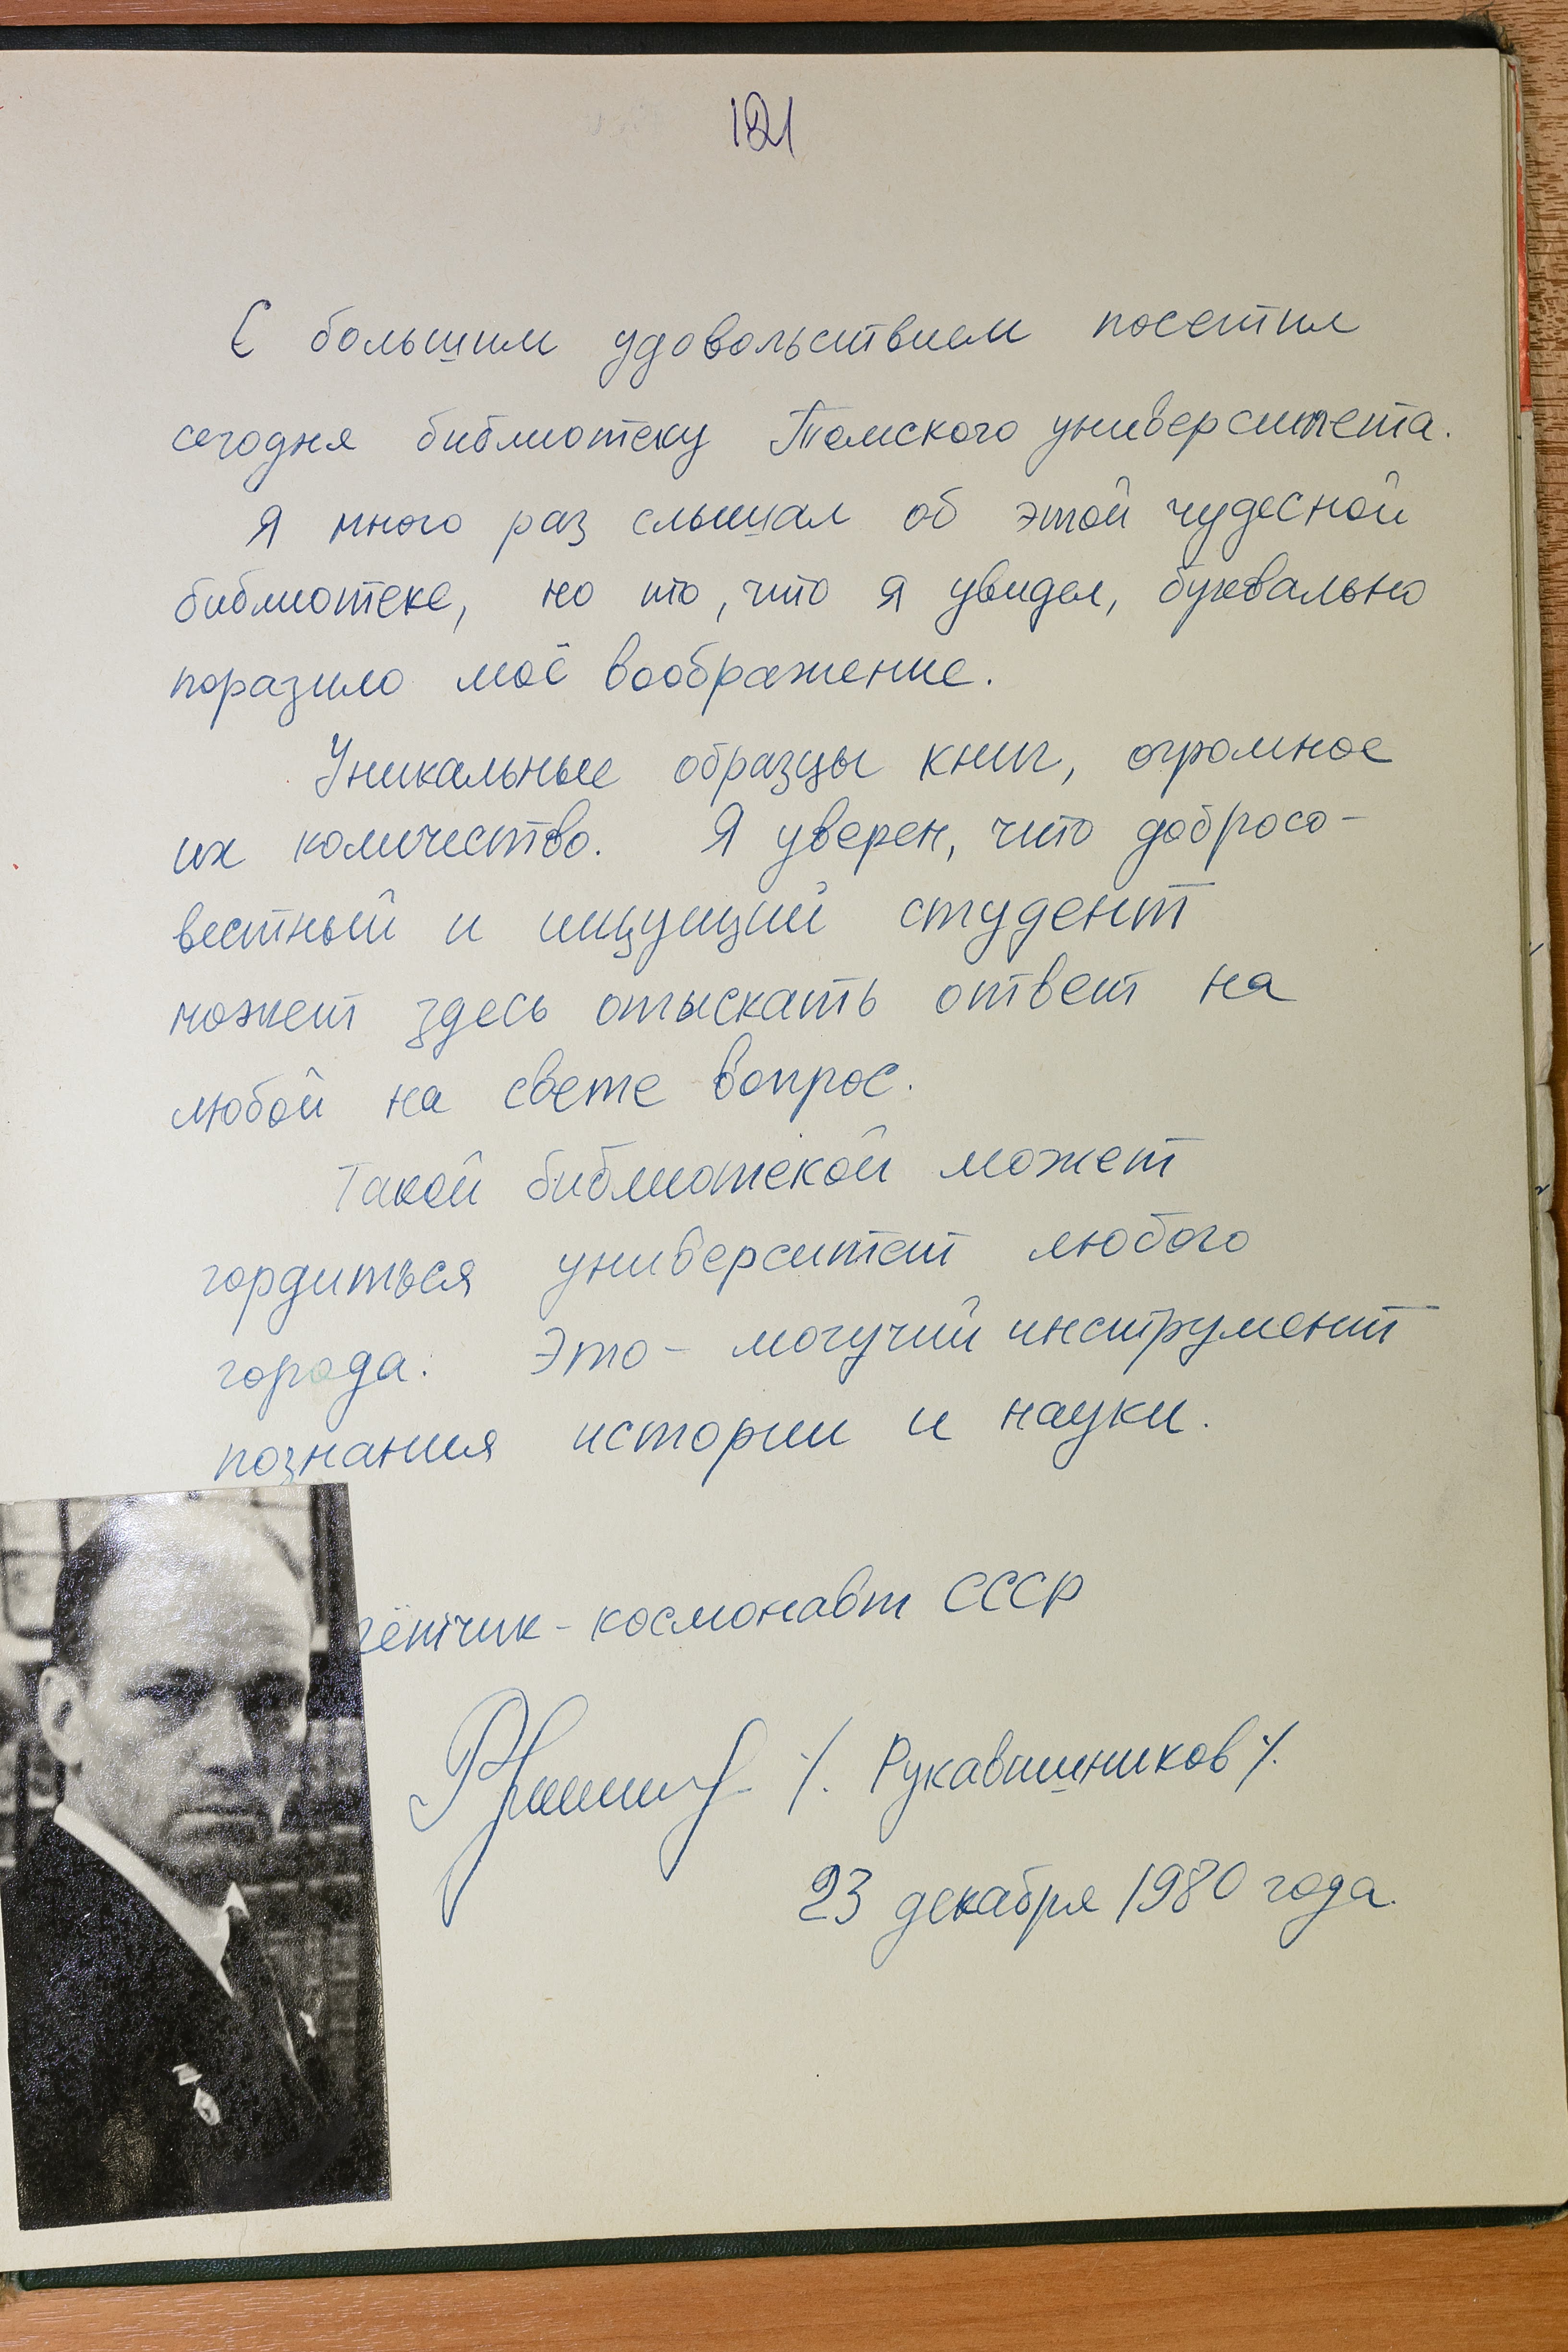 121
С большим удовольствием посетил
сегодня библиотеку Томского университета.
Я много раз слышал об этой чудесной
библиотеке, но то, что я увидел, буквально
поразило моё воображение.
Уникальные образцы книг, огромное
их количество. Я уверен, что добросо-
вестный и ищущий студент
может здесь отыскать ответ на
любой на свете вопрос.
Такой библиотекой может
гордиться университет любого
города. Это - могучий инструмент
познания истории и науки.
лётчик-космонавт СССР
/. Рукавишников /.
23 декабря 1980 года.